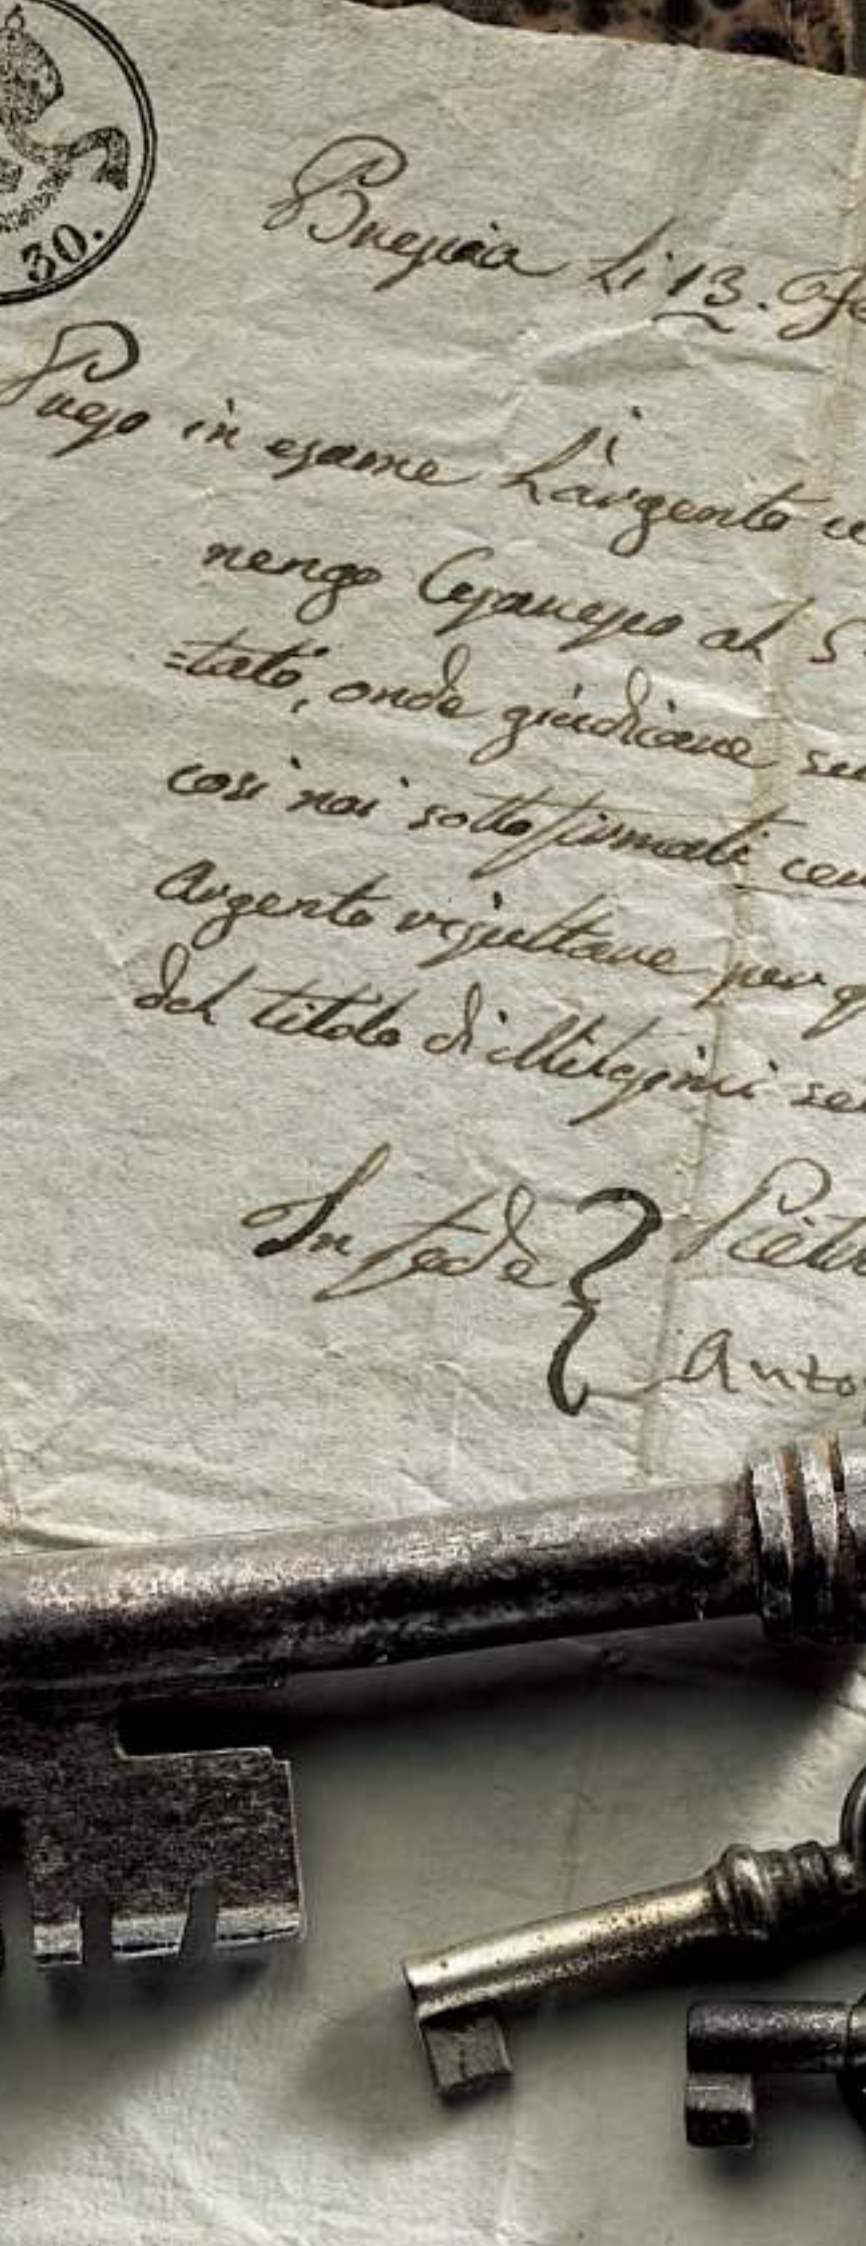 30.
Brescia li 13. Fe
Preso in esame L'argento ce
nengo Cesaresco al S.
=tato, onde giudicare se
così noi sottofirmati cer
Argento risultare per q
del titolo di Milesimi se
In fede } Pietro
Anto